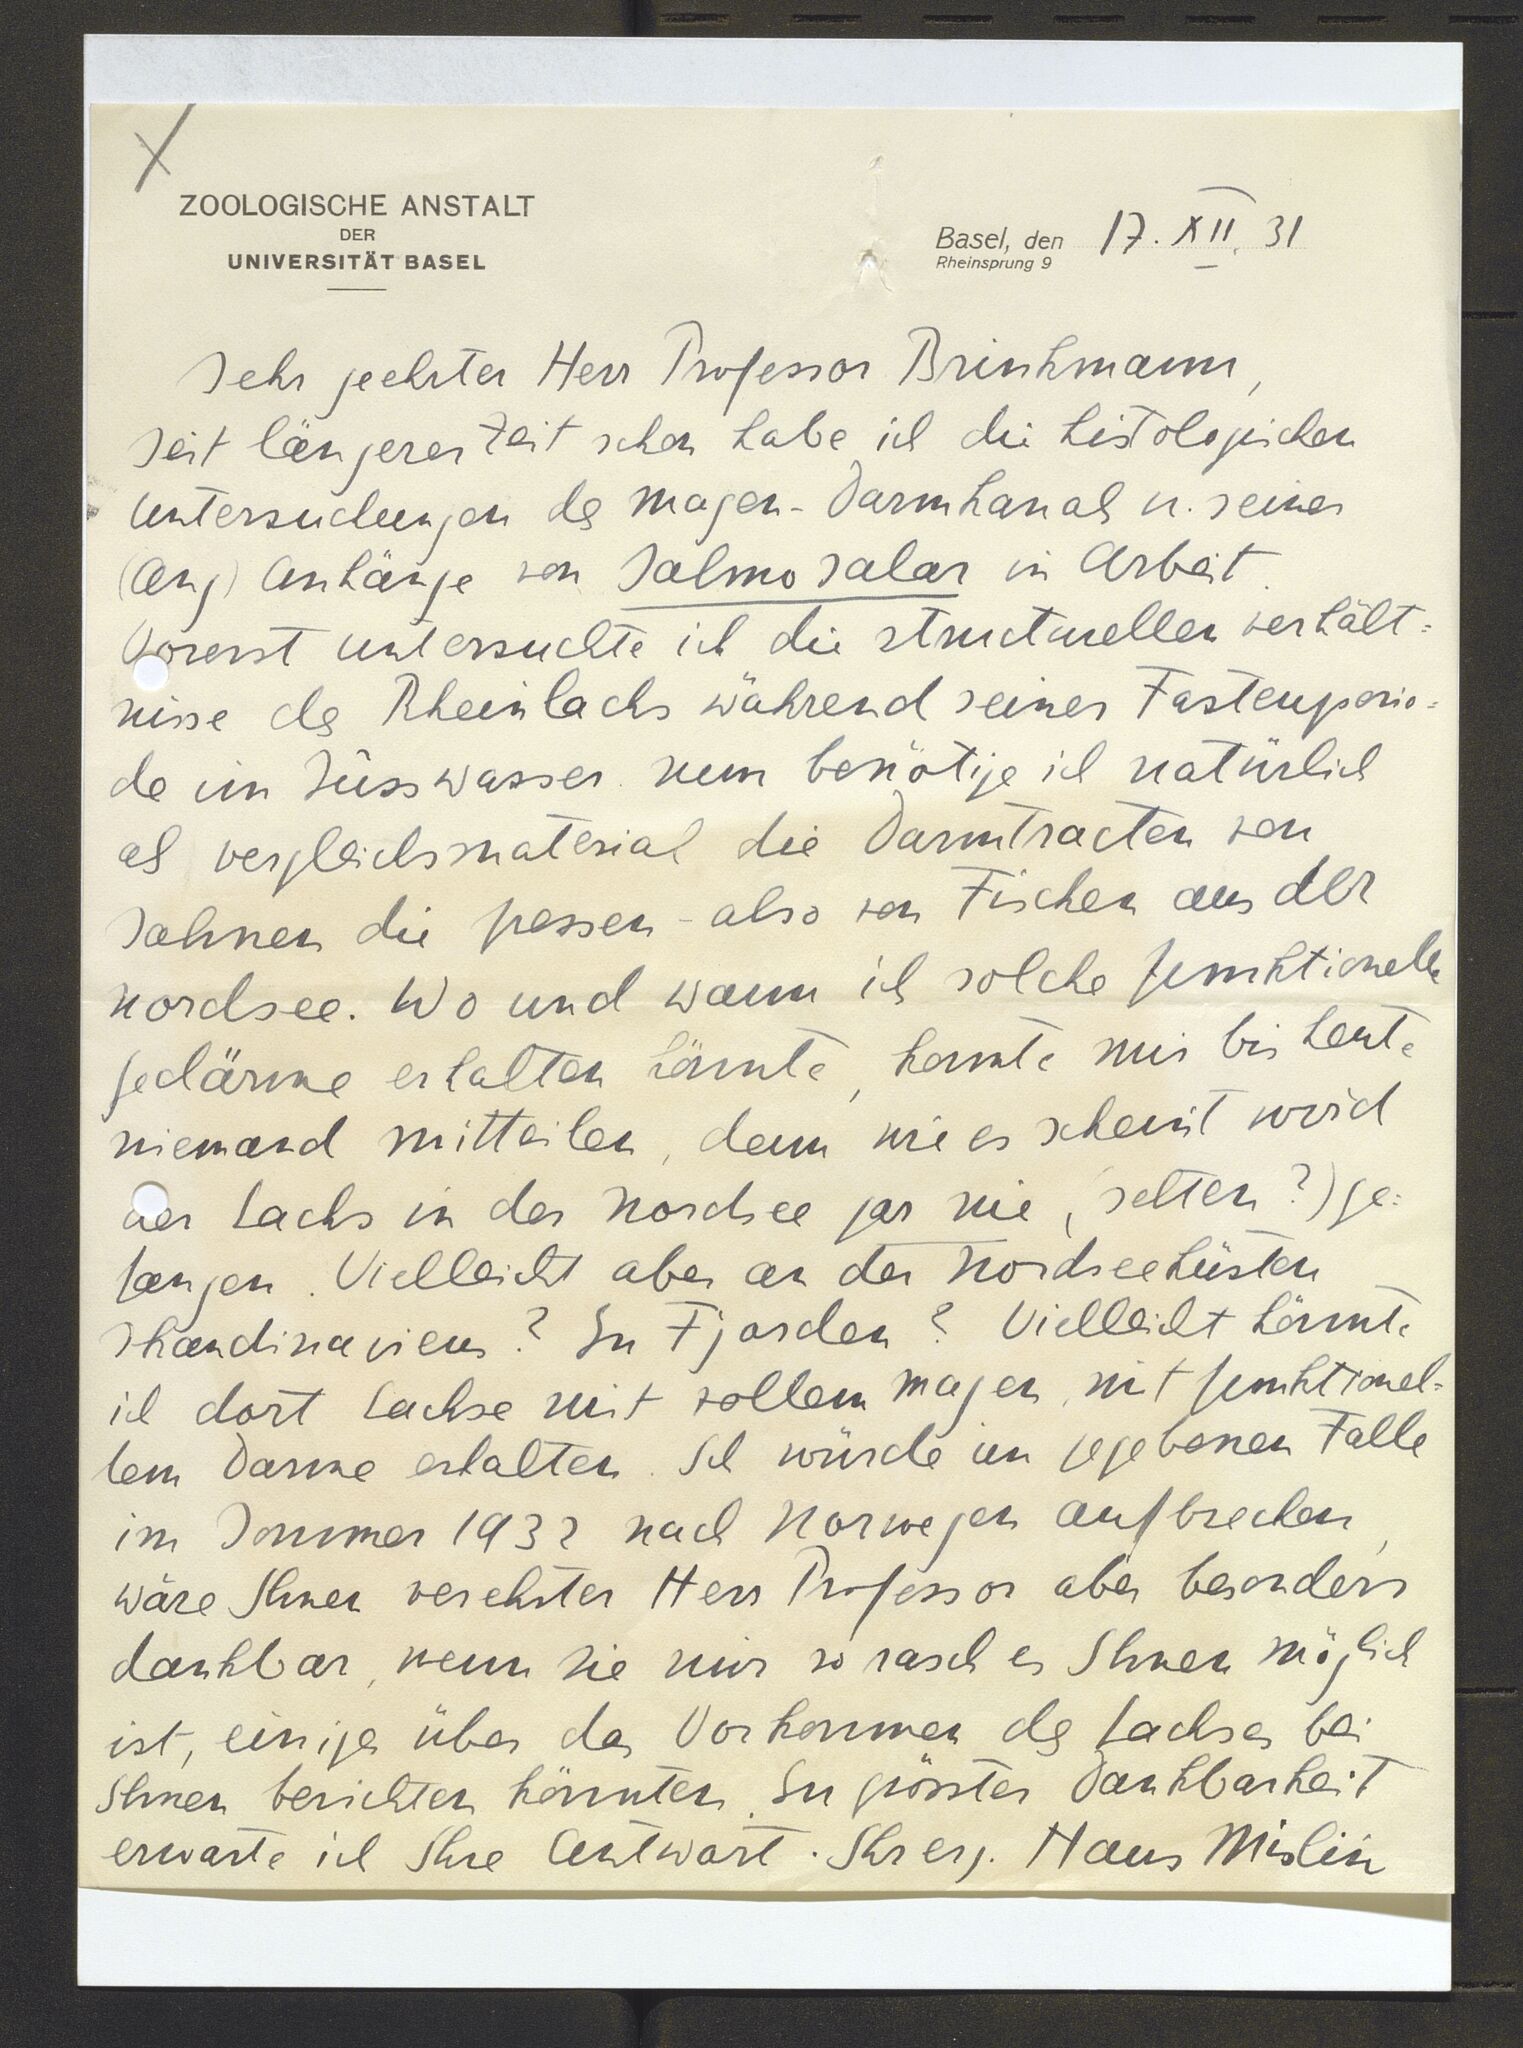 ZOOLOGISCHE ANSTALT
DER
UNIVERSITÄT BASEL
Basel, den 17. XII. 31
Rheinsprung 9
Sehr geehrter Herr Professor Brinkmann,
seit längerer Zeit schon habe ich die histologischen
Untersuchungen des Magen-Darmkanals u. seiner
(Ang) Anhänge von Salmo salar in Arbeit.
Vorerst untersuchte ich die structurellen verhält=
nisse des Rheinlachs während seiner Fastenperio=
de im Süsswasser. Nun benötige ich natürlich
als vergleichsmaterial die Darmtracten von
Salmen die fressen - also von Fischen aus der
Nordsee. Wo und wann ich solche funktionelle
Gedärme erhalten könnte, konnte mir bis heute
niemand mitteilen, denn wie es scheint wird
der Lachs in der Nordsee gar nie, (selten?) ge=
fangen. Vielleicht aber an den Nordseeküsten
Skandinaviens? In Fjorden? Vielleicht könnte
ich dort Lachse mit vollem Magen, mit funktionel=
lem Darme erhalten. Ich würde im gegebenen Falle
im Sommer 1932 nach Norwegen aufbrechen,
wäre Ihnen verehrter Herr Professor aber besonders
dankbar, wenn Sie mir so rasch es Ihnen möglich
ist, einiges über das Vorkommen des Lachses bei
Ihnen berichten könnten. In grösster Dankbarkeit
erwarte ich Ihre Antwort. Ihr erg. Hans Mislin